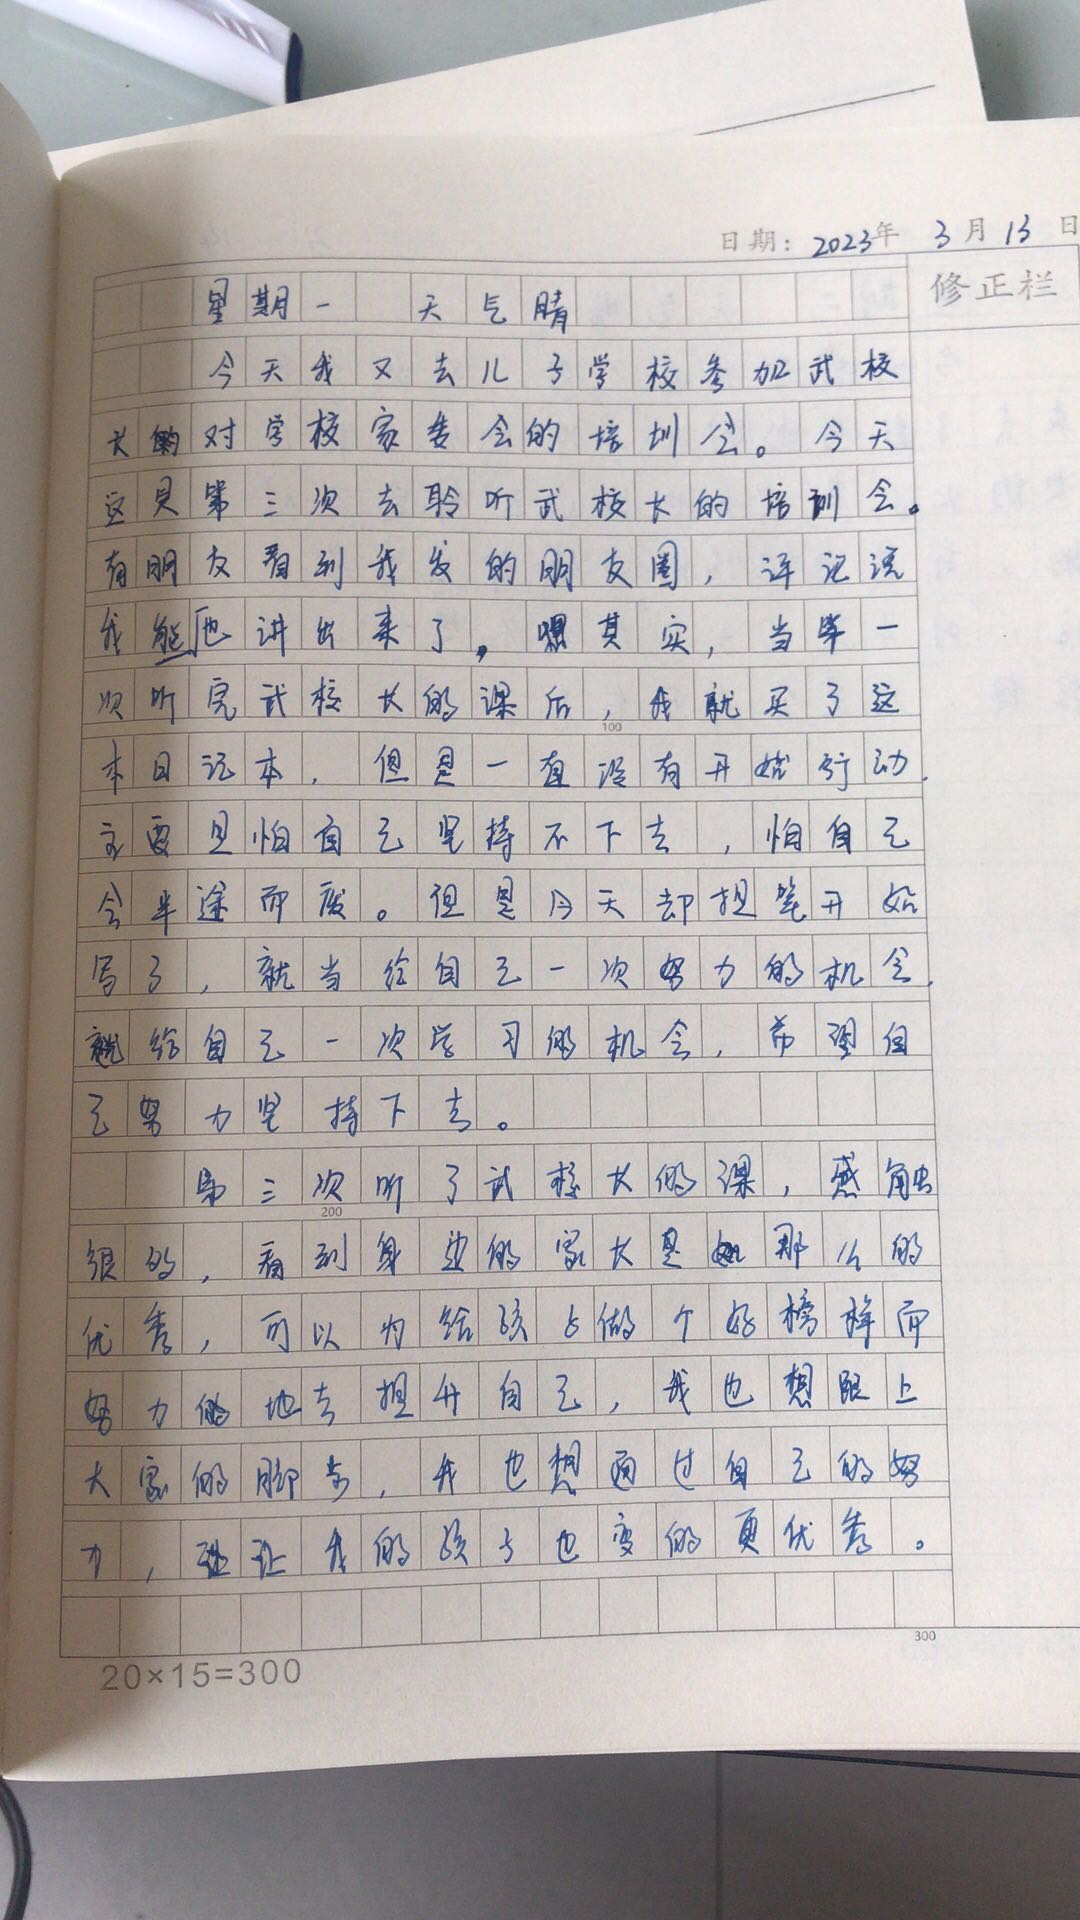 日期：2023年 3月13日
修正栏
星期一 天气晴
今天我又去儿子学校参加武校
长的对学校家委会的培训会。今天
这是第三次去聆听武校长的培训会。
有朋友看到我发的朋友圈，评论说
我能他讲出来了。嘿其实，当第一
次听完武校长的课后，我就买了这
100
本日记本，但是一直没有开始行动，
主要是怕自己坚持不下去，怕自己
会半途而废。但是今天却提笔开始
写了，就当给自己一次努力的机会，
就给自己一次学习的机会，希望自
己努力坚持下去。
第三次听了武校长的课，感触
200
很的，看到身边的家长是如那么的
优秀，可以为给孩子做个好榜样而
努力的地去提升自己，我也想跟上
大家的脚步，我也想通过自己的努
力，让我的孩子也变的更优秀。
300
20×15=300